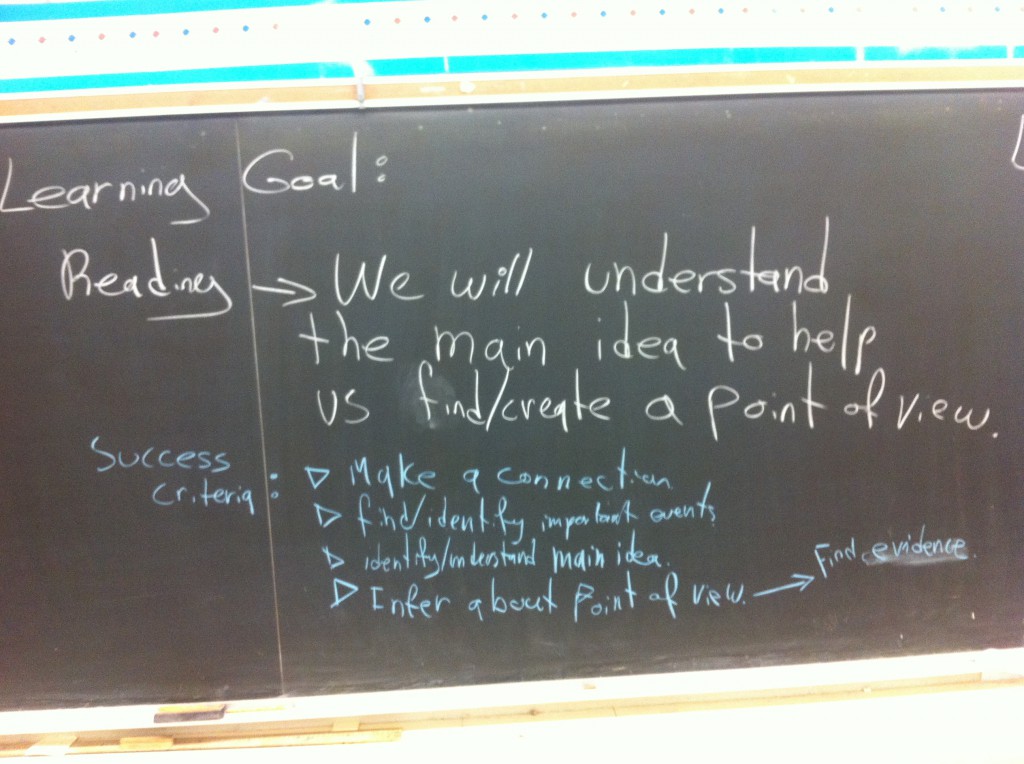 Learning Goal:
Reading → We will understand
the main idea to help
us find/create a point of view.
Success
criteria :
▷ Make a connection
▷ find/identify important events
▷ identify/understand main idea.
▷ Infer about point of view. → Find evidence.